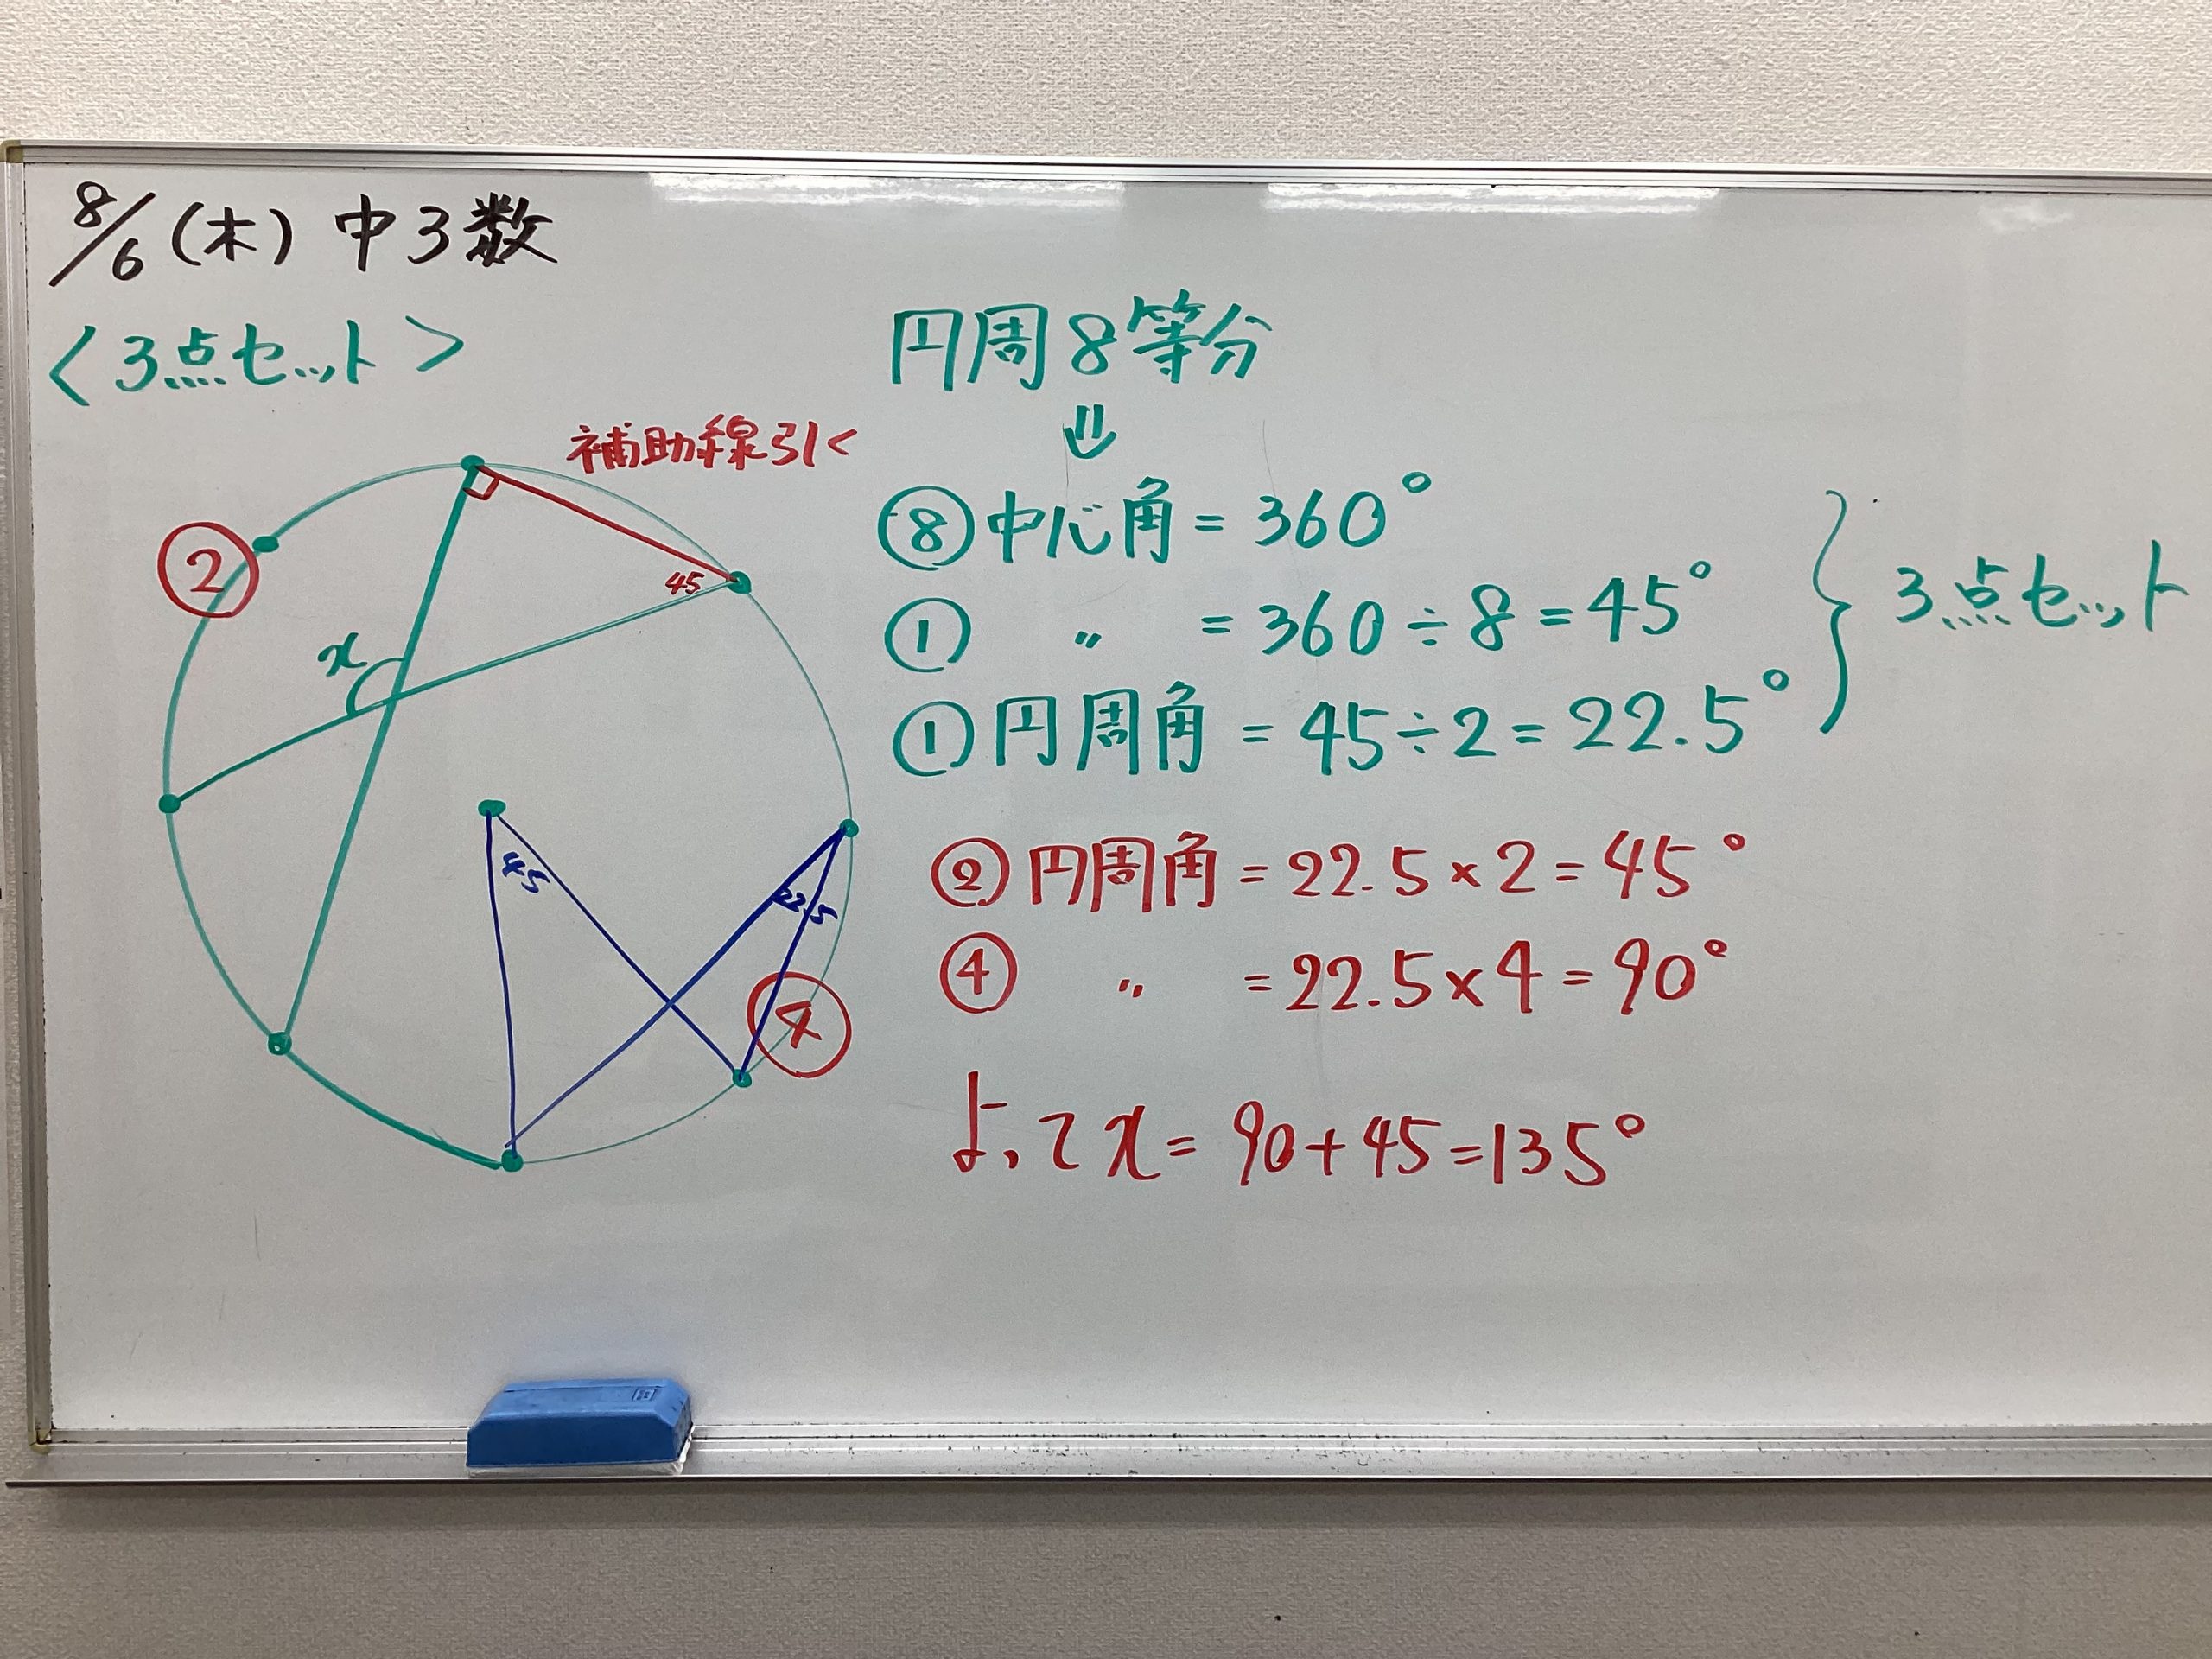 8/6(木) 中3数
<3点セット>
補助線引く
②
45
x
45
22.5
④
円周8等分
⇓
⑧中心角=360°
① 〃 =360÷8=45°
①円周角=45÷2=22.5°
3点セット
②円周角=22.5×2=45°
④ 〃 =22.5×4=90°
よってx=90+45=135°